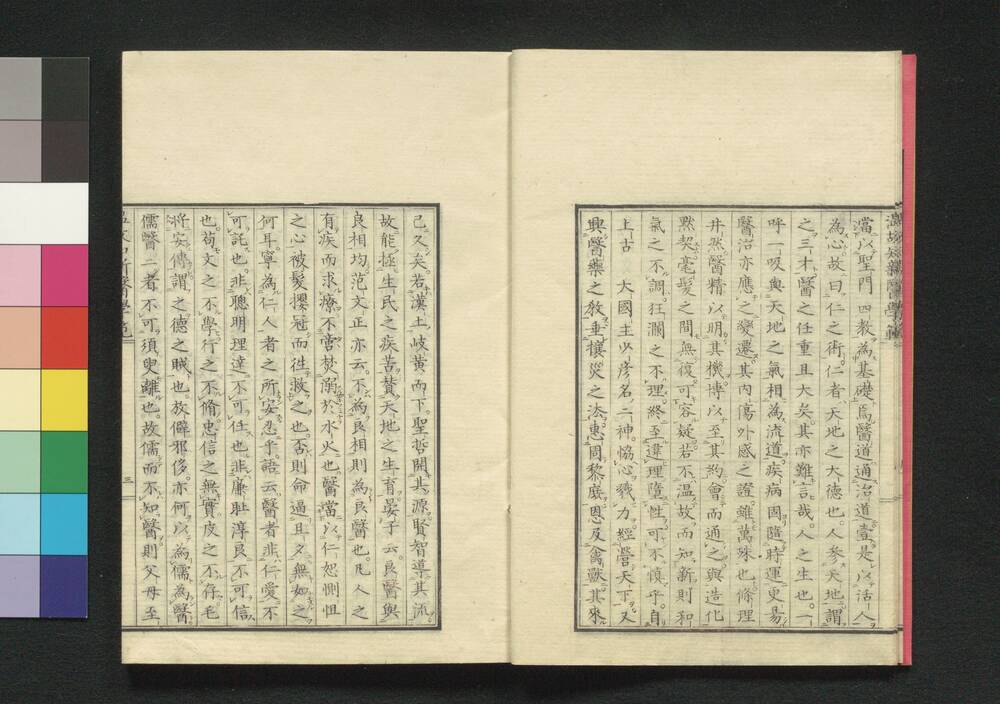 當以聖門四教為基礎焉醫道通治道壹是以活人
為心故曰仁之術仁者天地之大德也人參天地謂
之三才醫之任重且大矣其亦難言哉人之生也一
呼一吸與天地之氣相為流道疾病固隨時運更易
醫治亦應之變遷其內傷外感之證雖萬殊也條理
井然醫精以明其機博以至其約會而通之與造化
默契毫髮之間無復可容疑若不溫故而知新則和
氣之不調狂瀾之不理終至違理墮性可不慎乎自
上古 大國主少彥名二神協心戮力經營天下又
興醫藥之教垂攘災之法惠周黎庶恩及禽獸其來
已久矣若漢土岐黃而下聖哲開其源賢智導其流
故能拯生民之疾苦贊天地之生育晏子云良醫與
良相均范文正亦云不為良相則為良醫也凡人之
有疾而求療不啻焚溺於水火也醫當以仁恕惻怛
之心被髮攖冠而徃救之也否則命逼旦夕無如之
何耳寧為仁人者之所安忍乎語云醫者非仁愛不
可託也非聰明理達不可任也非廉恥淳良不可信
也苟文之不學行之不脩忠信之無實皮之不存毛
將安傅謂之德之賊也放僻邪侈亦何以為儒為醫
儒醫二者不可須臾離也故儒而不知醫則父母至
三